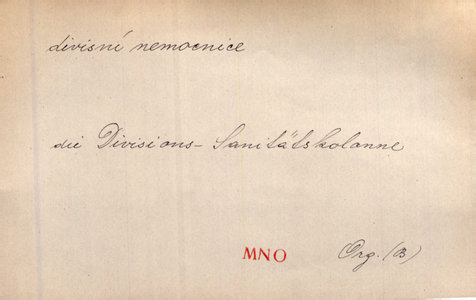 divisní nemocnice
die Divisions-Sanitätskolonne
MNO Org. (B)